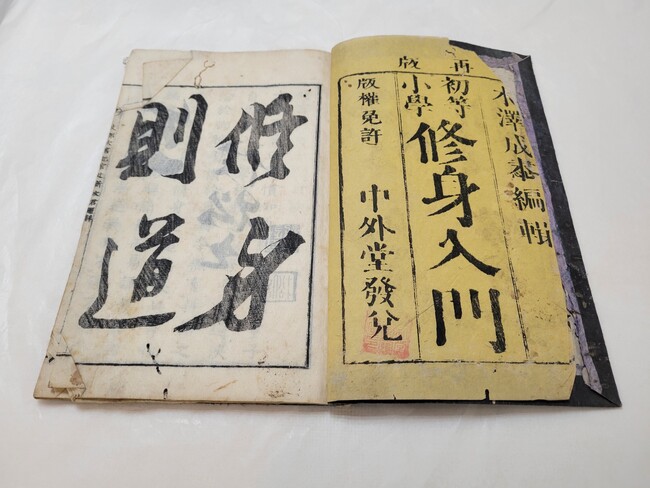 再版
木澤成肅編輯
初等
小學
修身入門
版權免許
中外堂發兌
修身
則道